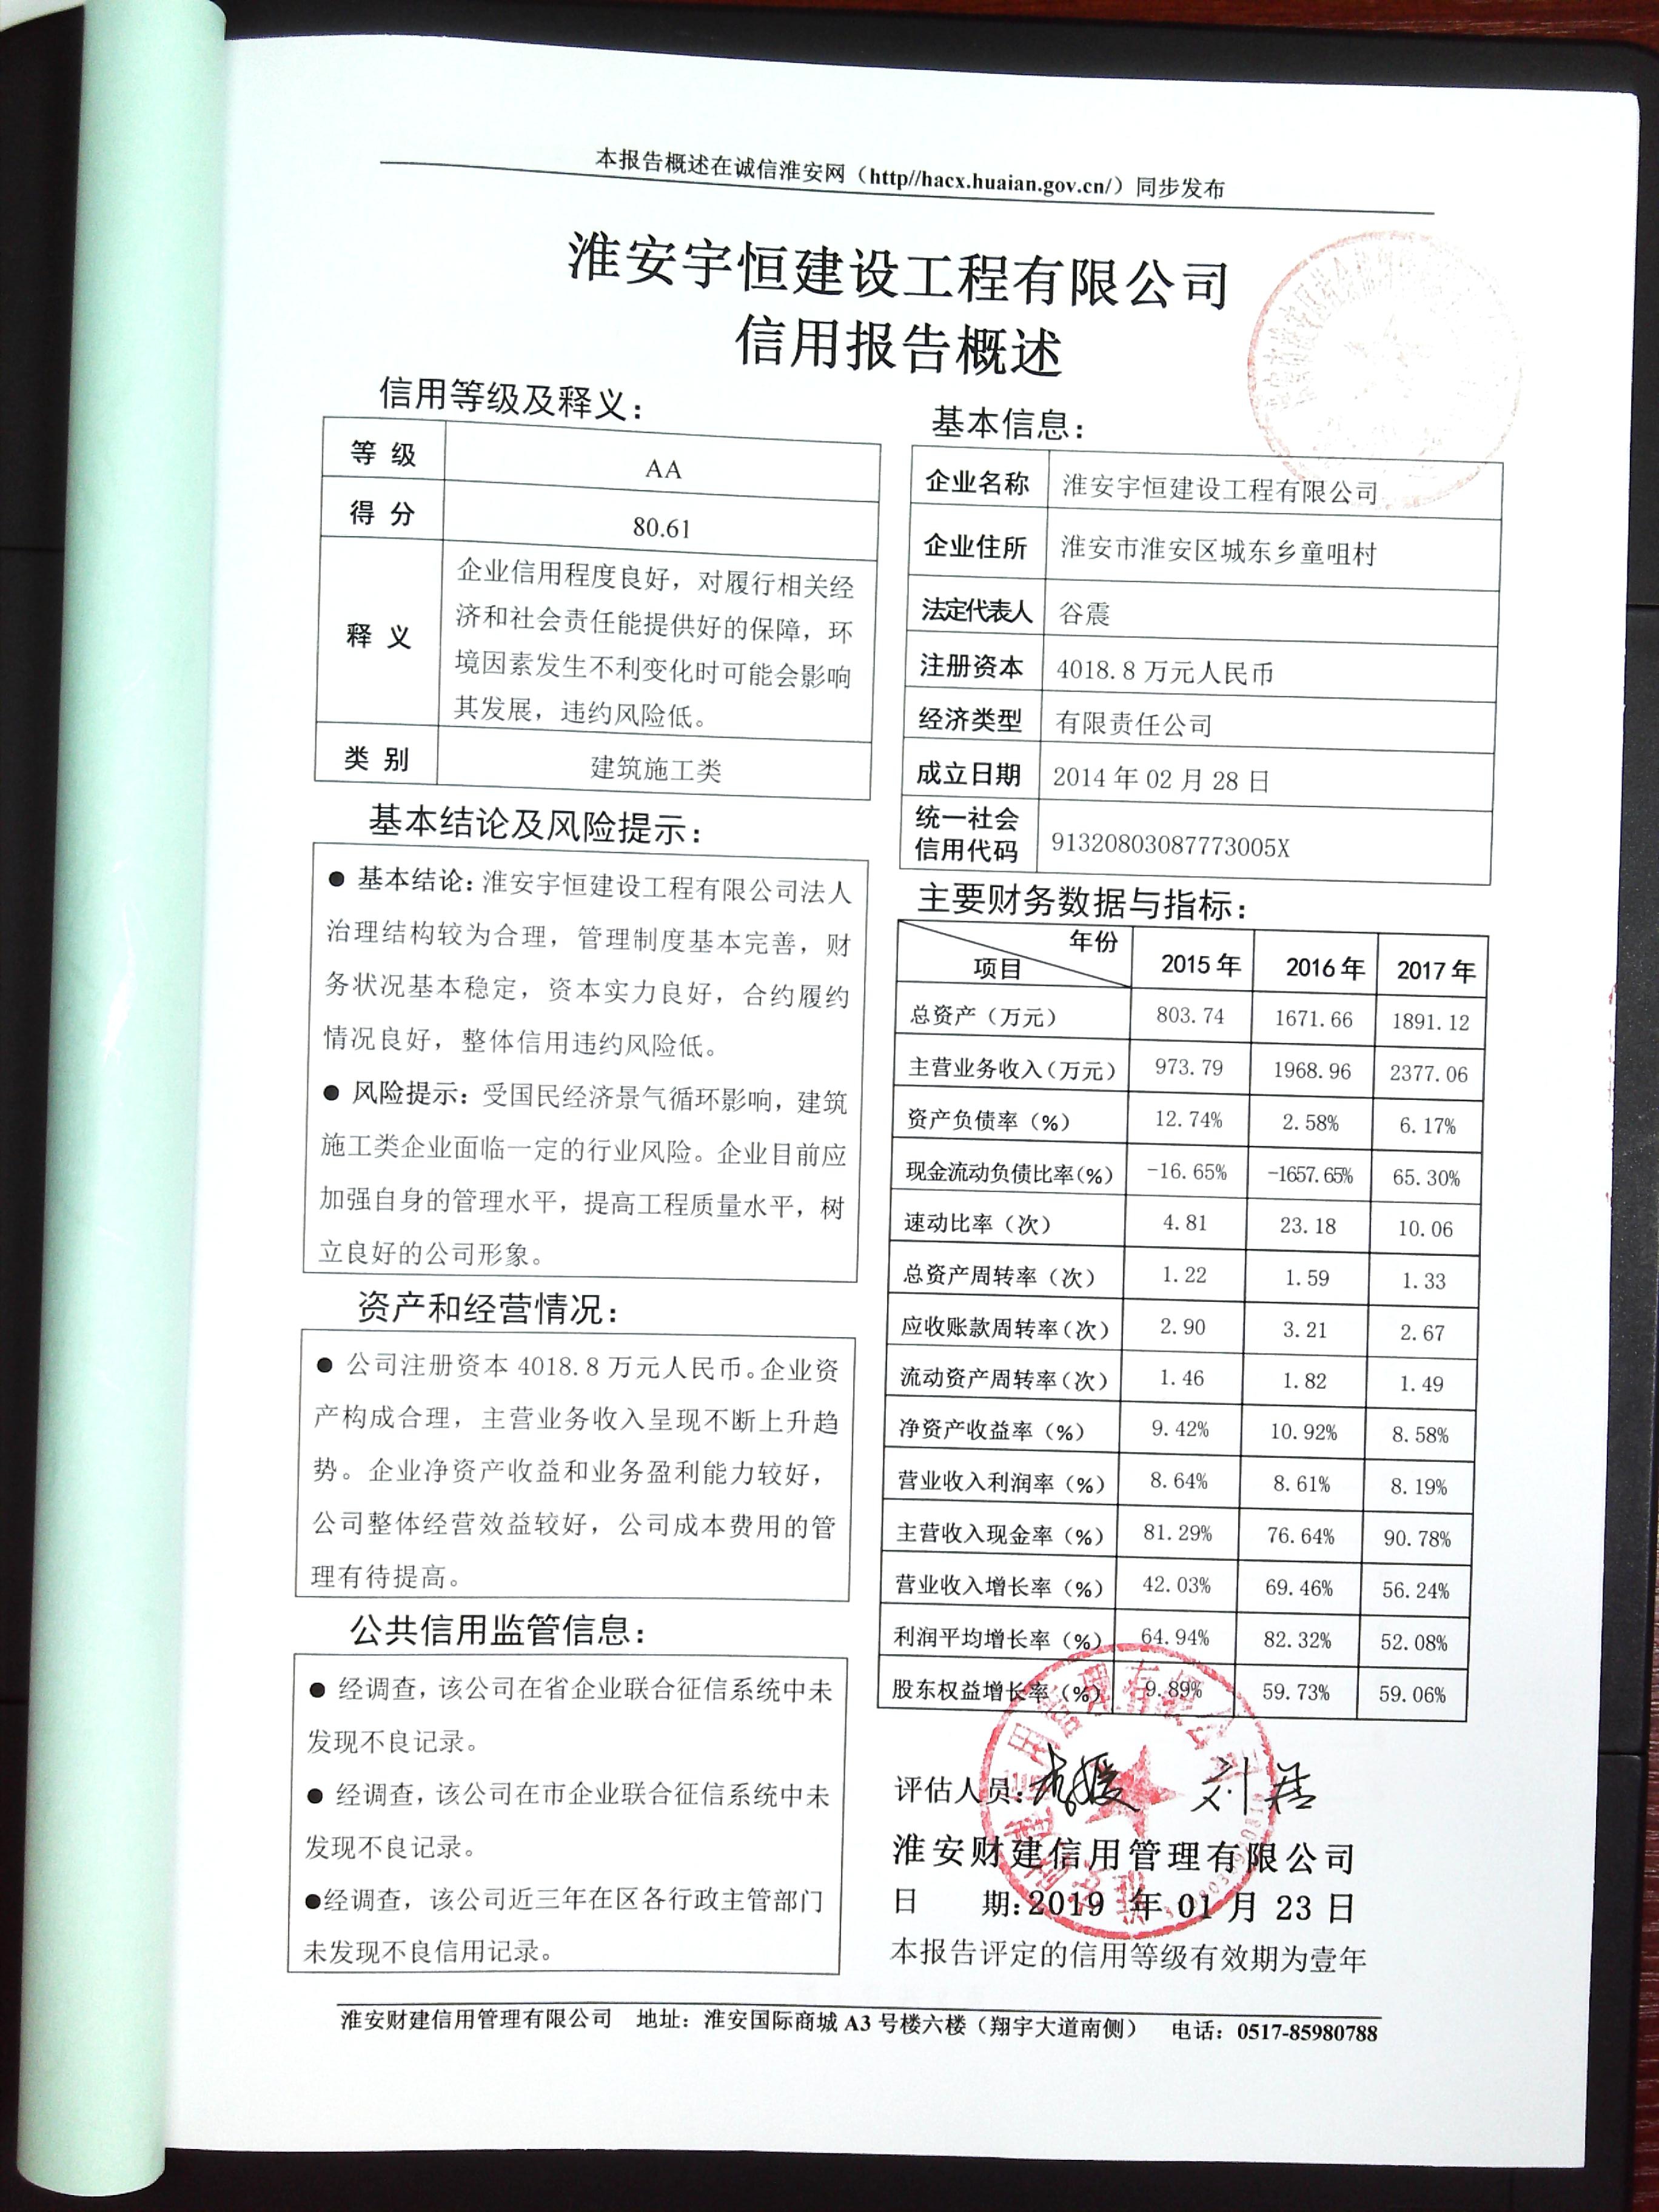 本报告概述在诚信淮安网（http//hacx.huaian.gov.cn/）同步发布
淮安宇恒建设工程有限公司
信用报告概述
信用等级及释义：
等 级 AA
得 分 80.61
释 义
企业信用程度良好，对履行相关经
济和社会责任能提供好的保障，环
境因素发生不利变化时可能会影响
其发展，违约风险低。
类 别 建筑施工类
基本结论及风险提示：
● 基本结论：淮安宇恒建设工程有限公司法人
治理结构较为合理，管理制度基本完善，财
务状况基本稳定，资本实力良好，合约履约
情况良好，整体信用违约风险低。
● 风险提示：受国民经济景气循环影响，建筑
施工类企业面临一定的行业风险。企业目前应
加强自身的管理水平，提高工程质量水平，树
立良好的公司形象。
资产和经营情况：
● 公司注册资本 4018.8 万元人民币。企业资
产构成合理，主营业务收入呈现不断上升趋
势。企业净资产收益和业务盈利能力较好，
公司整体经营效益较好，公司成本费用的管
理有待提高。
公共信用监管信息：
● 经调查，该公司在省企业联合征信系统中未
发现不良记录。
● 经调查，该公司在市企业联合征信系统中未
发现不良记录。
●经调查，该公司近三年在区各行政主管部门
未发现不良信用记录。
基本信息：
企业名称 淮安宇恒建设工程有限公司
企业住所 淮安市淮安区城东乡童咀村
法定代表人 谷震
注册资本 4018.8 万元人民币
经济类型 有限责任公司
成立日期 2014 年 02 月 28 日
统一社会
信用代码 91320803087773005X
主要财务数据与指标：
年份
项目 2015 年 2016 年 2017 年
总资产（万元） 803.74 1671.66 1891.12
主营业务收入（万元） 973.79 1968.96 2377.06
资产负债率（%） 12.74% 2.58% 6.17%
现金流动负债比率（%） -16.65% -1657.65% 65.30%
速动比率（次） 4.81 23.18 10.06
总资产周转率（次） 1.22 1.59 1.33
应收账款周转率（次） 2.90 3.21 2.67
流动资产周转率（次） 1.46 1.82 1.49
净资产收益率（%） 9.42% 10.92% 8.58%
营业收入利润率（%） 8.64% 8.61% 8.19%
主营收入现金率（%） 81.29% 76.64% 90.78%
营业收入增长率（%） 42.03% 69.46% 56.24%
利润平均增长率（%） 64.94% 82.32% 52.08%
股东权益增长率（%） 9.89% 59.73% 59.06%
评估人员：
淮安财建信用管理有限公司
日 期：2019 年 01 月 23 日
本报告评定的信用等级有效期为壹年
淮安财建信用管理有限公司 地址：淮安国际商城 A3 号楼六楼（翔宇大道南侧） 电话：0517-85980788